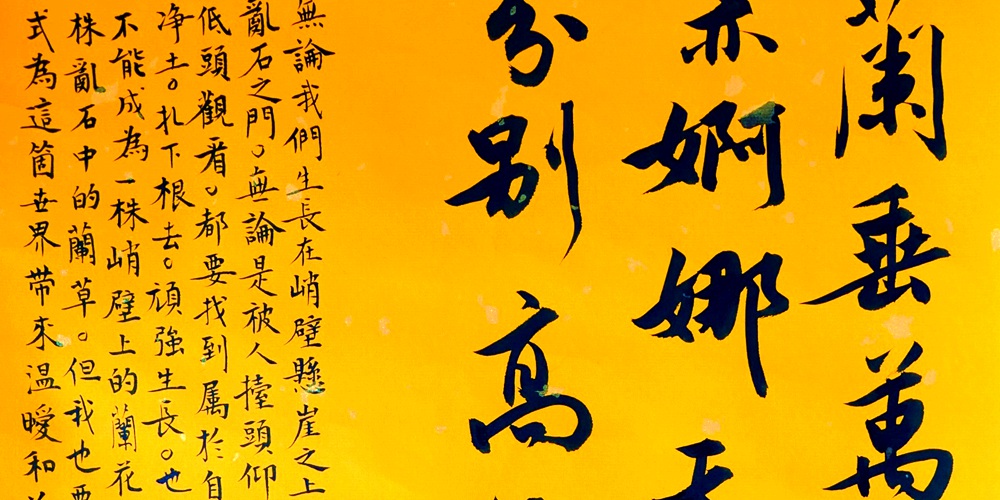 蘭垂萬
亦婀娜
分別高
無論我們生長在峭壁懸崖之上
亂石之門。無論是被人擡頭仰
低頭觀看。都要找到属於自
净土。扎下根去。頑強生長。也
不能成為一株峭壁上的蘭花
株亂石中的蘭草。但我也要
式為這箇世界帶來温暖和